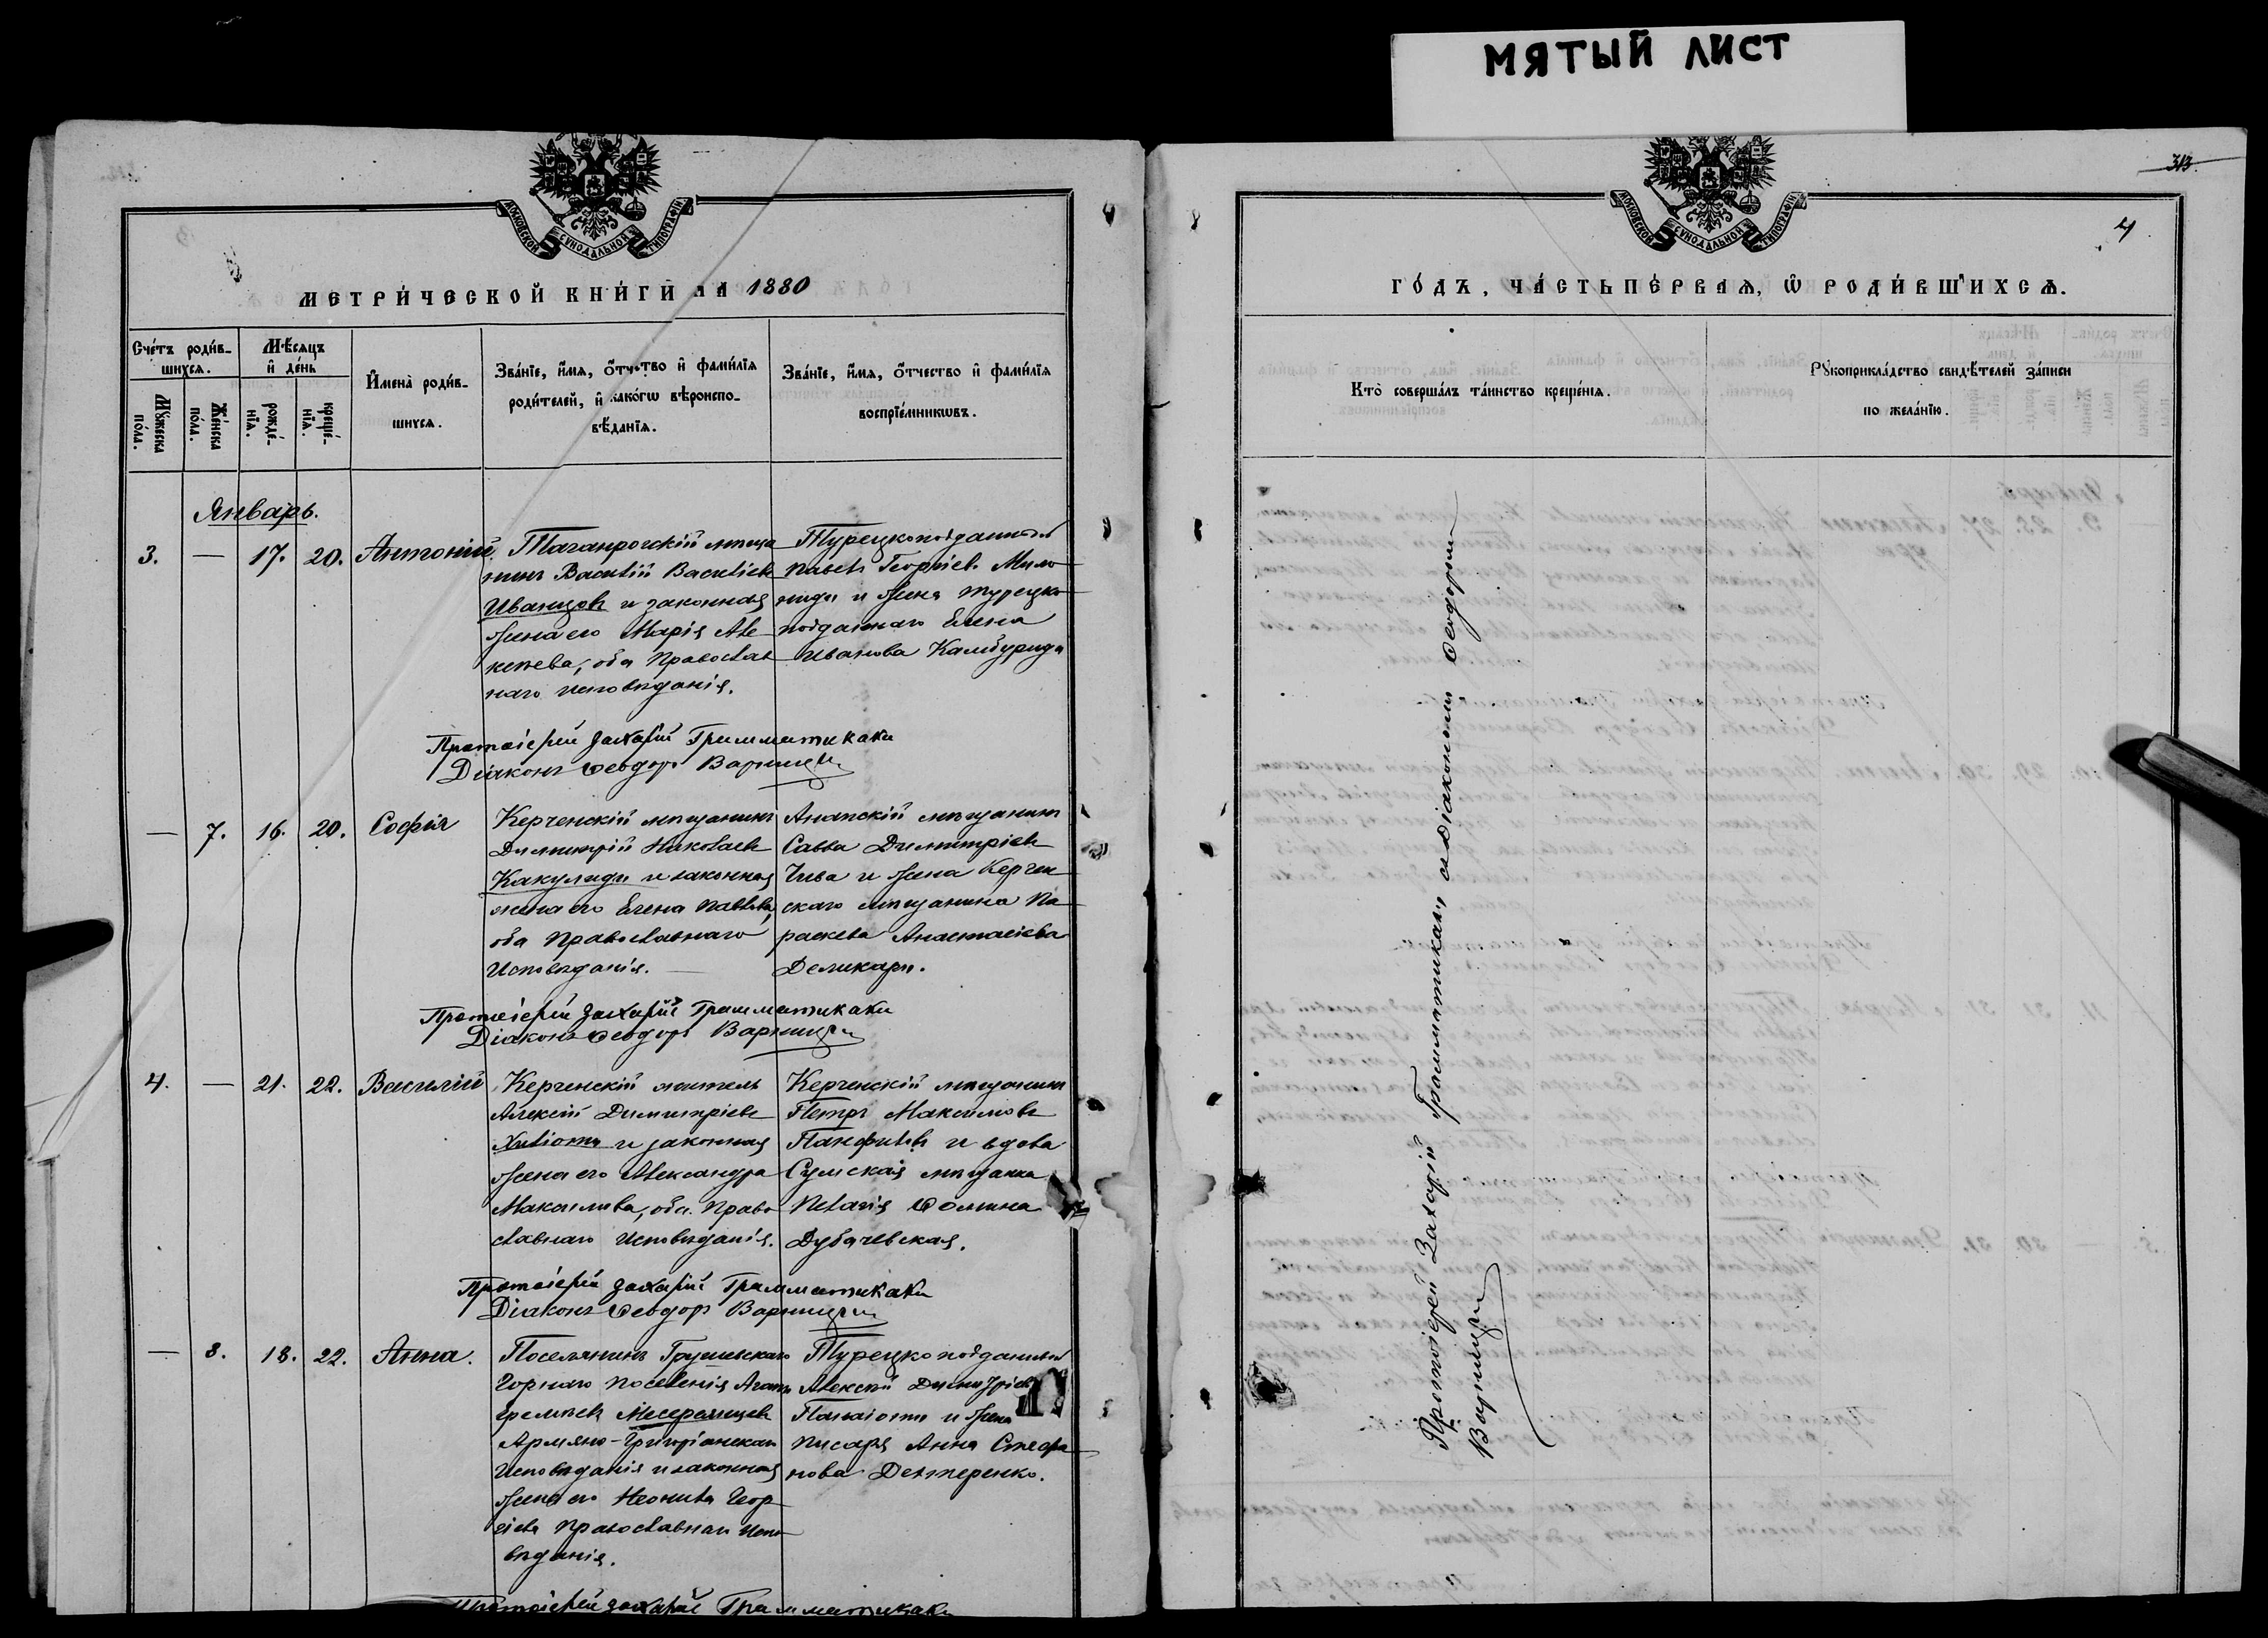 МЯТЫЙ ЛИСТ
МОСКОВСКОЙ СУНОДАЛЬНОЙ ТИПОГРАФІИ
МЕТРИ́ЧЕСКОЙ КНИ́ГИ НА 1880
Сче́тъ роди́в-
шихсѧ.
Мѣ́сѧцъ
и҆ де́нь
Мꙋ́жеска
по́ла.
Же́нска
по́ла.
рожде́-
нїѧ.
креще́-
нїѧ.
И҆мена̀ роди́в-
шихсѧ.
Зва́нїе, и҆́мѧ, ѻ҆́тчество и҆ фами́лїѧ
роди́телей, и҆ како́гѡ вѣроиспо-
вѣ́данїѧ.
Зва́нїе, и҆́мѧ, ѻ҆́тчество и҆ фами́лїѧ
воспрїе́мникѡвъ.
Январь.
3. — 17. 20. Антоній.
Таганрогскій мѣща
нинъ Василій Васильевъ
Иванцовъ и законная
жена его Марія Але
ксѣева, оба Православ
наго исповѣданія.
Турецкоподданный
Павелъ Георгіевъ
и жена турецко
подданнаго Елена
Иванова
Протоіерей Захарій Грамматикаки
Діаконъ Ѳеодоръ Варницки
— 7. 16. 20. Софія
Керченскій мѣщанинъ
Димитрій Николаевъ
Какулиди и законная
жена его Елена Павлова,
оба Православнаго
Исповѣданія.
Анапскій мѣщанинъ
Савва Димитріевъ
Чива и жена Керчен
скаго мѣщанина Па
раскева Анастасіева
Деликари.
Протоіерей Захарій Грамматикаки
Діаконъ Ѳеодоръ Варницки
4. — 21. 22. Василій
Керченскій житель
Алексій Димитріевъ
и законная
жена его Александра
Максимова, оба Право
славнаго Исповѣданія.
Керченскій мѣщанинъ
Петръ Максимовъ
Панфиловъ и вдова
Сумская мѣщанка
Пелагія Ѳомина
Дубачевская.
Протоіерей Захарій Грамматикаки
Діаконъ Ѳеодоръ Варницки
— 8. 18. 22. Анна.
Поселянинъ Грушевскаго
Горнаго поселенія
Месеромцевъ
Армяно-Григоріанскаго
Исповѣданія и законная
жена его Неонила Геор
гіева Православнаго Испо
вѣданія.
Турецкоподданный
Алексій Димитріевъ
Панаіоти и жена
писаря Анна Стефа
нова Дехтеренко.
Протоіерей Захарій Грамматикаки
313.
4
МОСКОВСКОЙ СУНОДАЛЬНОЙ ТИПОГРАФІИ
ГО́ДЪ, ЧА́СТЬ ПЕ́РВАѦ, Ѽ РОДИ́ВШИХСѦ.
Кто̀ соверша́лъ та́инство креще́нїѧ.
Рꙋкоприкла́дство свидѣ́телей за́писи
по жела́нїю.
Протоіерей Захарій Грамматикаки, съ Діакономъ Ѳеодоромъ
Варницки